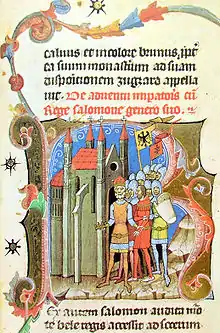 caluus et incolore brunus, ipm
ca suum monasterium ad suam
dispositionem zugzard appella
uit. De adventu impatoris cu
Rege salomone genero suo.
Ex autem salomon audita mor
te bele regis accessit ad socerum